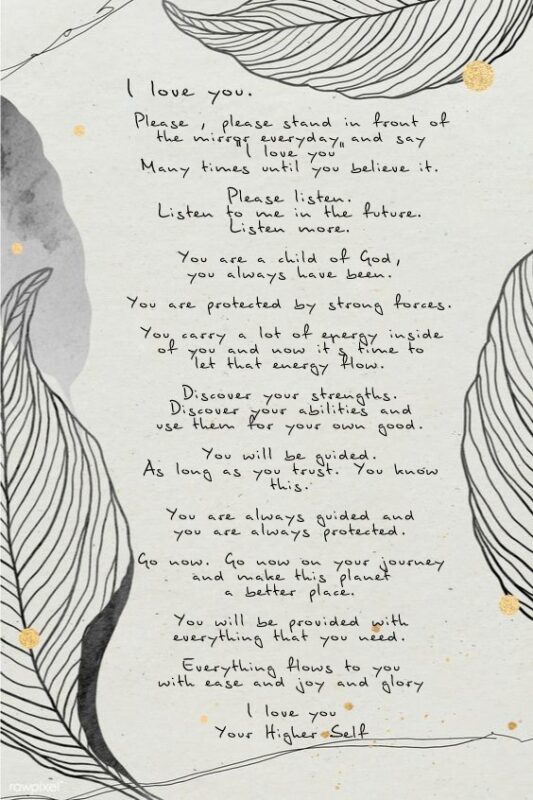 I love you.
Please , please stand in front of
the mirror everyday and say
"I love you"
Many times until you believe it.
Please listen.
Listen to me in the future.
Listen more.
You are a child of God,
you always have been.
You are protected by strong forces.
You carry a lot of energy inside
of you and now it's time to
let that energy flow.
Discover your strengths.
Discover your abilities and
use them for your own good.
You will be guided.
As long as you trust. You know
this.
You are always guided and
you are always protected.
Go now. Go now on your journey
and make this planet
a better place.
You will be provided with
everything that you need.
Everything flows to you
with ease and joy and glory
I love you
Your Higher Self
rawpixel